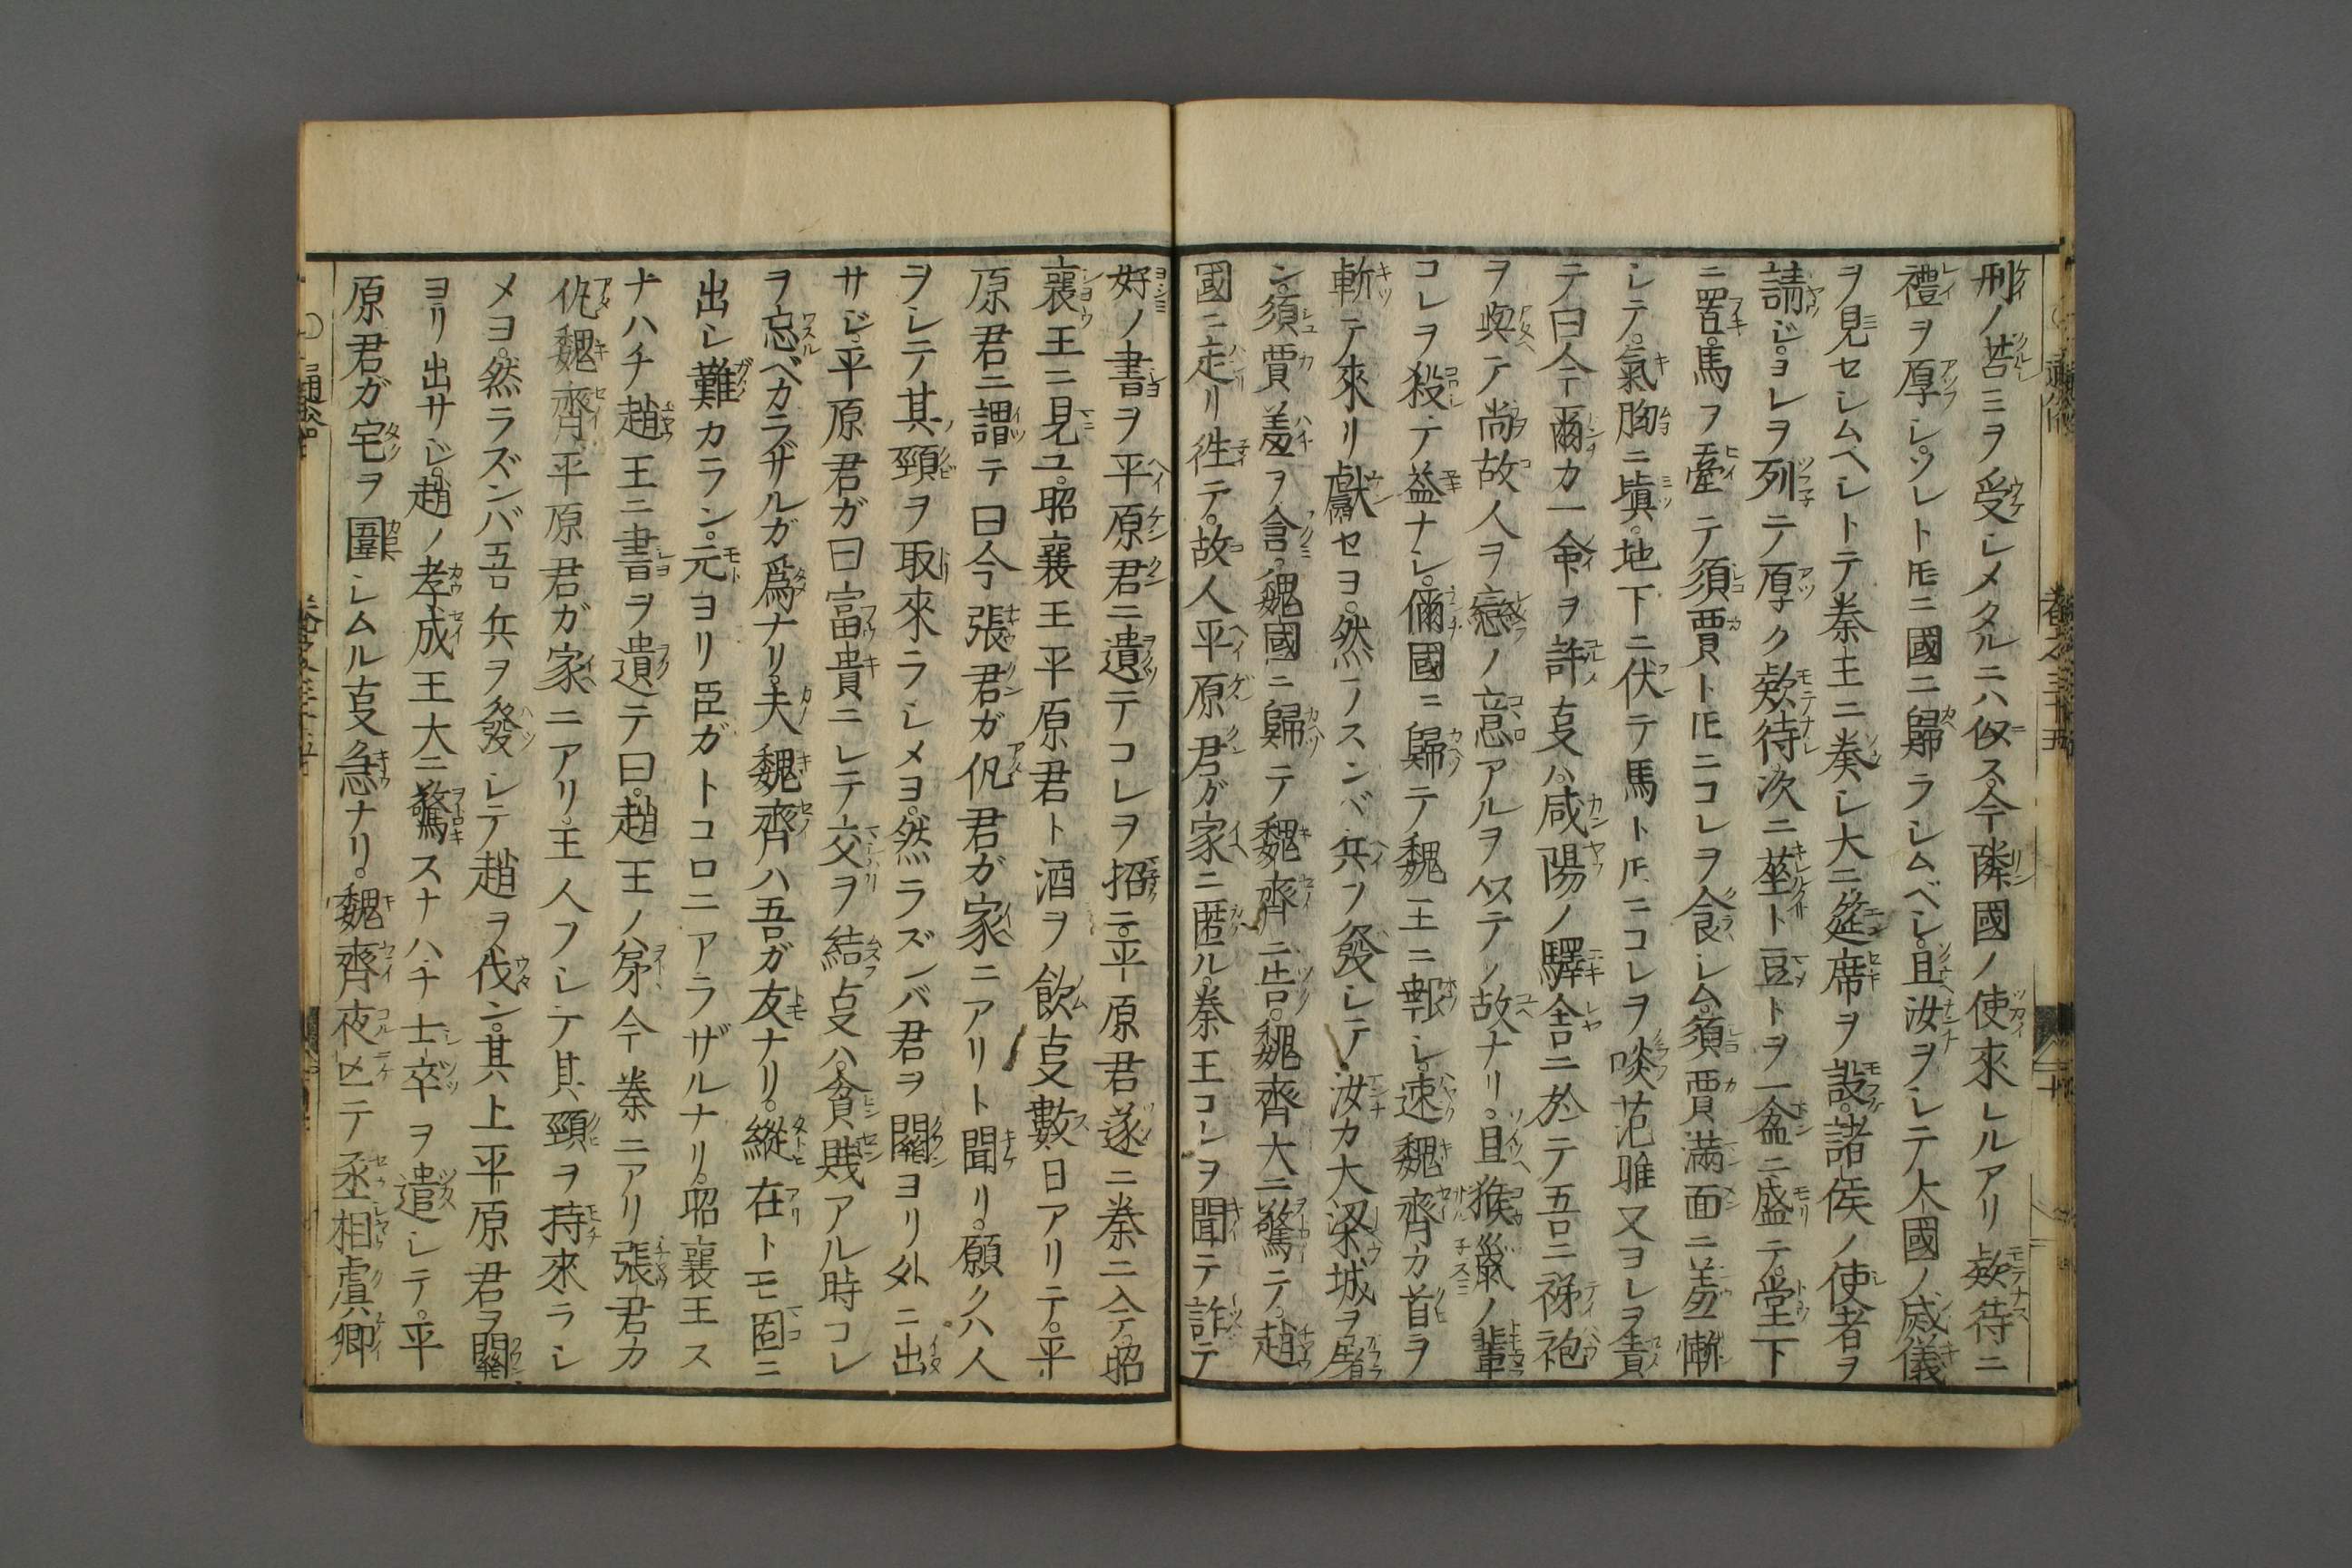 刑ノ苦ミヲ受シメタルニハ似ス今隣國ノ使來レルアリ欵待ニ
禮ヲ厚シソレト𪜈ニ國ニ歸ラシムベシ。且汝ヲシテ大國ノ威儀
ヲ見セシムヘシトテ秦王ニ奏シ大ニ筵席ヲ設。諸侯ノ使者ヲ
請ジ。ヨレヲ列ニテ厚ク欵待次ニ莝ト豆トヲ一盆ニ盛テ。堂下
ニ置。馬ヲ牽テ須賈ト𪜈ニコレヲ食シム。須賈滿面ニ羞慚
シテ。氣胸ニ塡。地下ニ伏テ馬ト𪜈ニコレヲ啖。范雎又ヨレヲ責
テ曰今爾カ一命ヲ許支ハ。咸陽ノ驛舎ニ於テ吾ニ祶袍
ヲ與テ尚故人ヲ戀ノ意アルヲ以テノ故ナリ。且猴巤ノ輩
コレヲ殺テ益ナシ。儞國ニ歸テ魏王ニ報シ。速魏齊カ首ヲ
斬テ來リ獻セヨ。然ラスンバ兵ヲ發シテ汝カ大梁城ヲ屠
ン。須賈羞ヲ含テ魏國ニ歸テ魏齊ニ告。魏齊大ニ驚テ。趙
國ニ走リ徃テ。故人平原君ガ家ニ匿ル。秦王コレヲ聞テ詐テ
好ノ書ヲ平原君ニ遺テコレヲ招ニ。平原君遂ニ秦ニ入テ。昭
襄王ニ見ユ。昭襄王平原君ト酒ヲ飲支數日アリテ。平
原君ニ謂テ曰今張君ガ仇君ガ家ニアリト聞リ。願クハ人
ヲシテ其頸ヲ取來ラシメヨ。然ラズンバ君ヲ關ヨリ外ニ出
サジ。平原君ガ曰富貴ニシテ交ヲ結支ハ。貧賤アル時コレ
ヲ忘ベカラザルガ爲ナリ。夫魏齊ハ吾ガ友ナリ。縱在トモ固ニ
出シ難カラン。元ヨリ臣ガトコロニアラザルナリ。昭襄王ス
ナハチ趙王ニ書ヲ遺テ曰。趙王ノ弟今秦ニアリ張君カ
仇魏齊平原君ガ家ニアリ。王人ヲシテ其頸ヲ持來ラシ
メヨ。然ラズンバ吾兵ヲ發シテ趙ヲ伐ン。其上平原君ヲ關
ヨリ出サジ。趙ノ孝成王大ニ驚スナハチ士卒ヲ遣シテ。平
原君ガ宅ヲ圍シムル支急ナリ。魏齊夜亡テ丞相虞卿